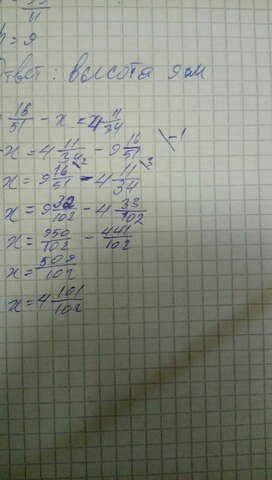 11
= 9
Ответ: высота 9 см
16/51 - x = 4 11/34
-x = 4 11/34 - 9 16/51 | -1
x = 9 16/51 - 4 11/34
x = 9 32/102 - 4 33/102
x = 950/102 - 441/102
x = 509/102
x = 4 101/102